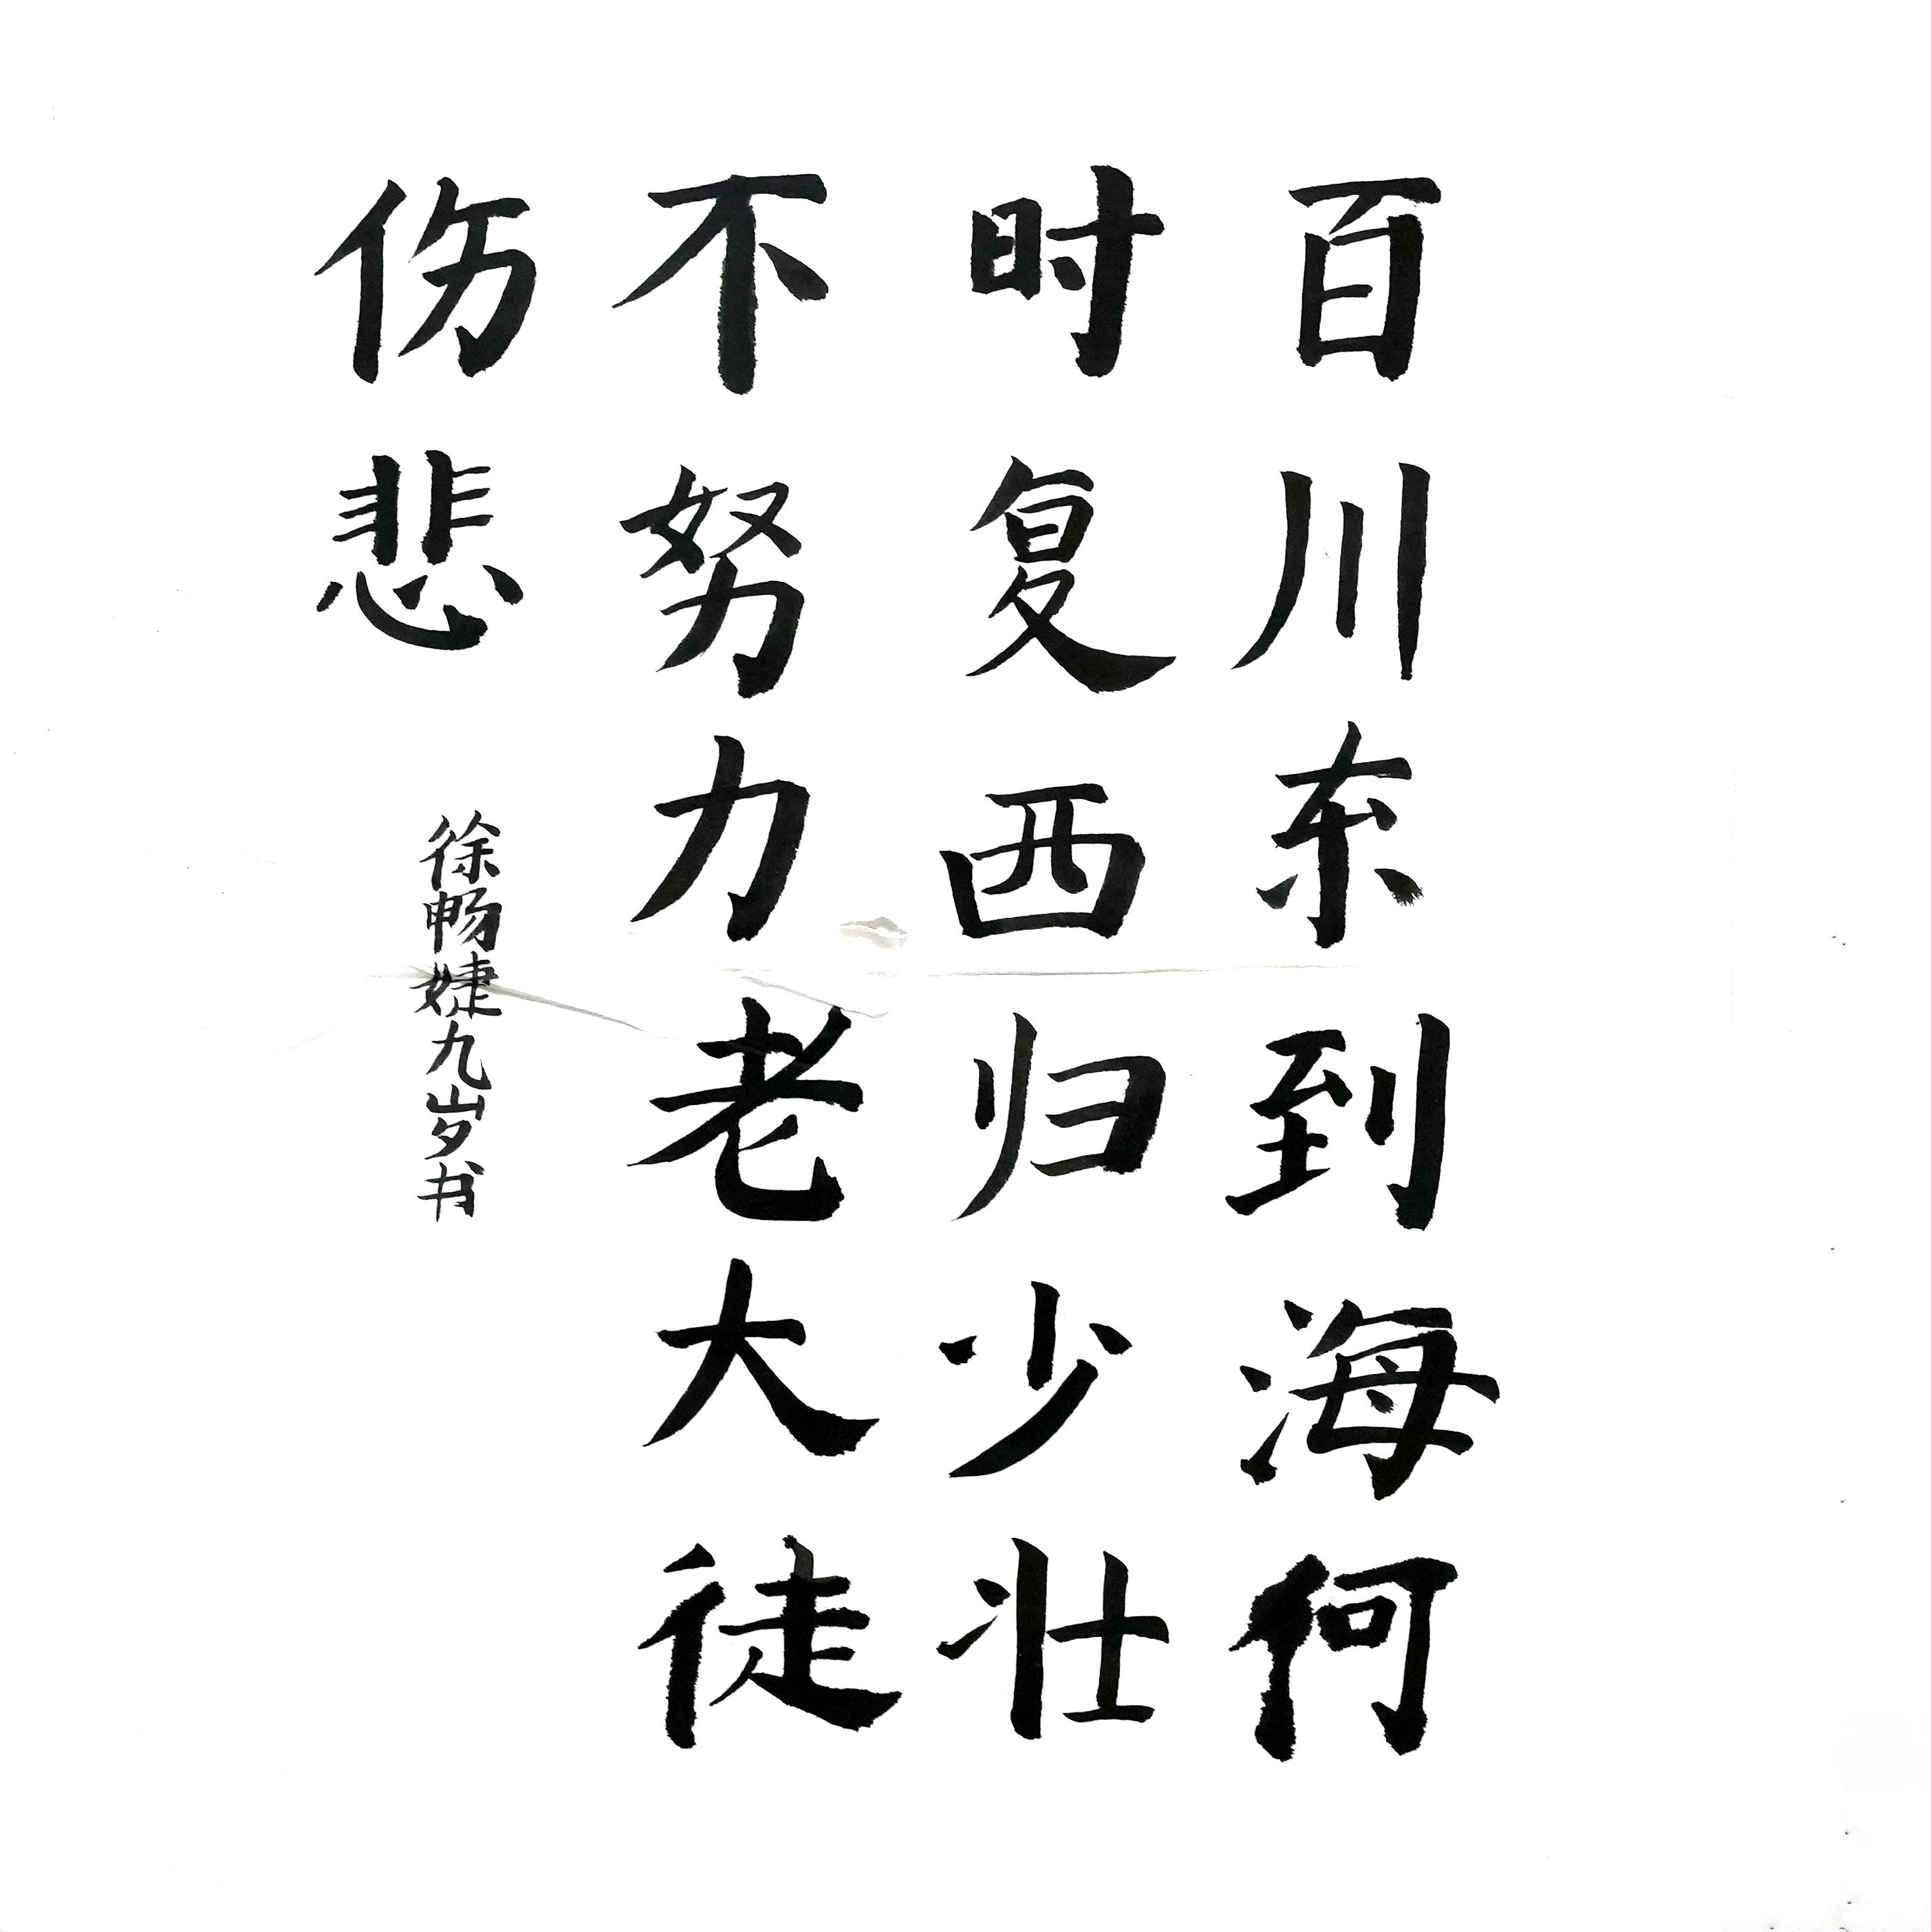 百川东到海何
时复西归少壮
不努力老大徒
伤悲
徐畅婕九岁书